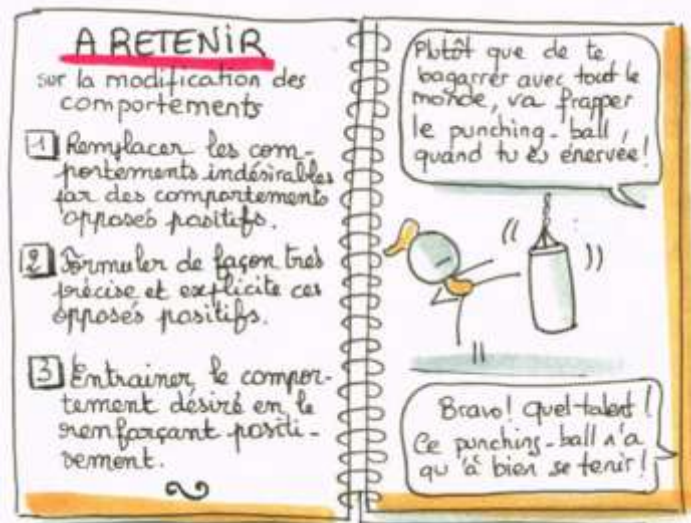 A RETENIR
sur la modification des
comportements
1 Remplacer les com-
portements indésirables
par des comportements
opposés positifs.
2 Formuler de façon très
précise et explicite ces
opposés positifs.
3 Entrainer le compor-
tement désiré en le
renforçant positi-
vement.
Plutôt que de te
bagarrer avec tout le
monde, va frapper
le punching-ball,
quand tu es énervée!
Bravo! Quel talent!
Ce punching-ball n'a
qu'à bien se tenir!